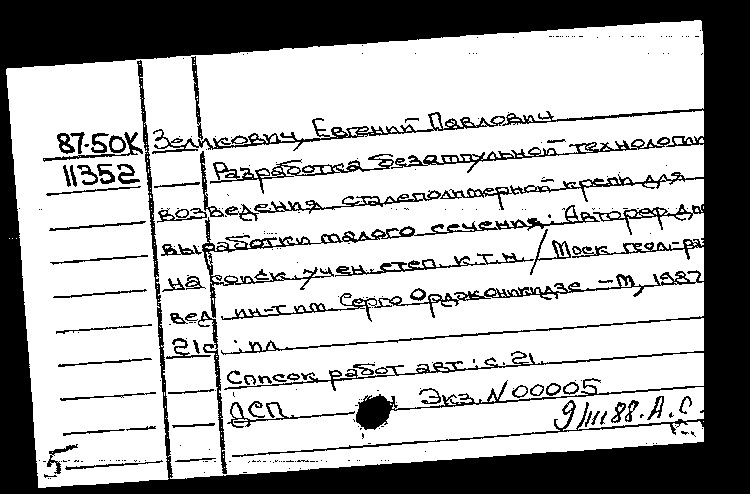 87-50К Зеликович, Евгений Павлович
11352 Разработка безампульной технологии
возведения сталеполимерной крепи для
выработки малого сечения: Автореф. дис
на соиск. учен. степ. к.т.н. / Моск геол.-раз
вед ин-т им. Серго Орджоникидзе. - М, 1987
21с : ил.
Список работ авт.: с. 21.
ДСП. Экз. N 00005
9/III 88. А.С.
5